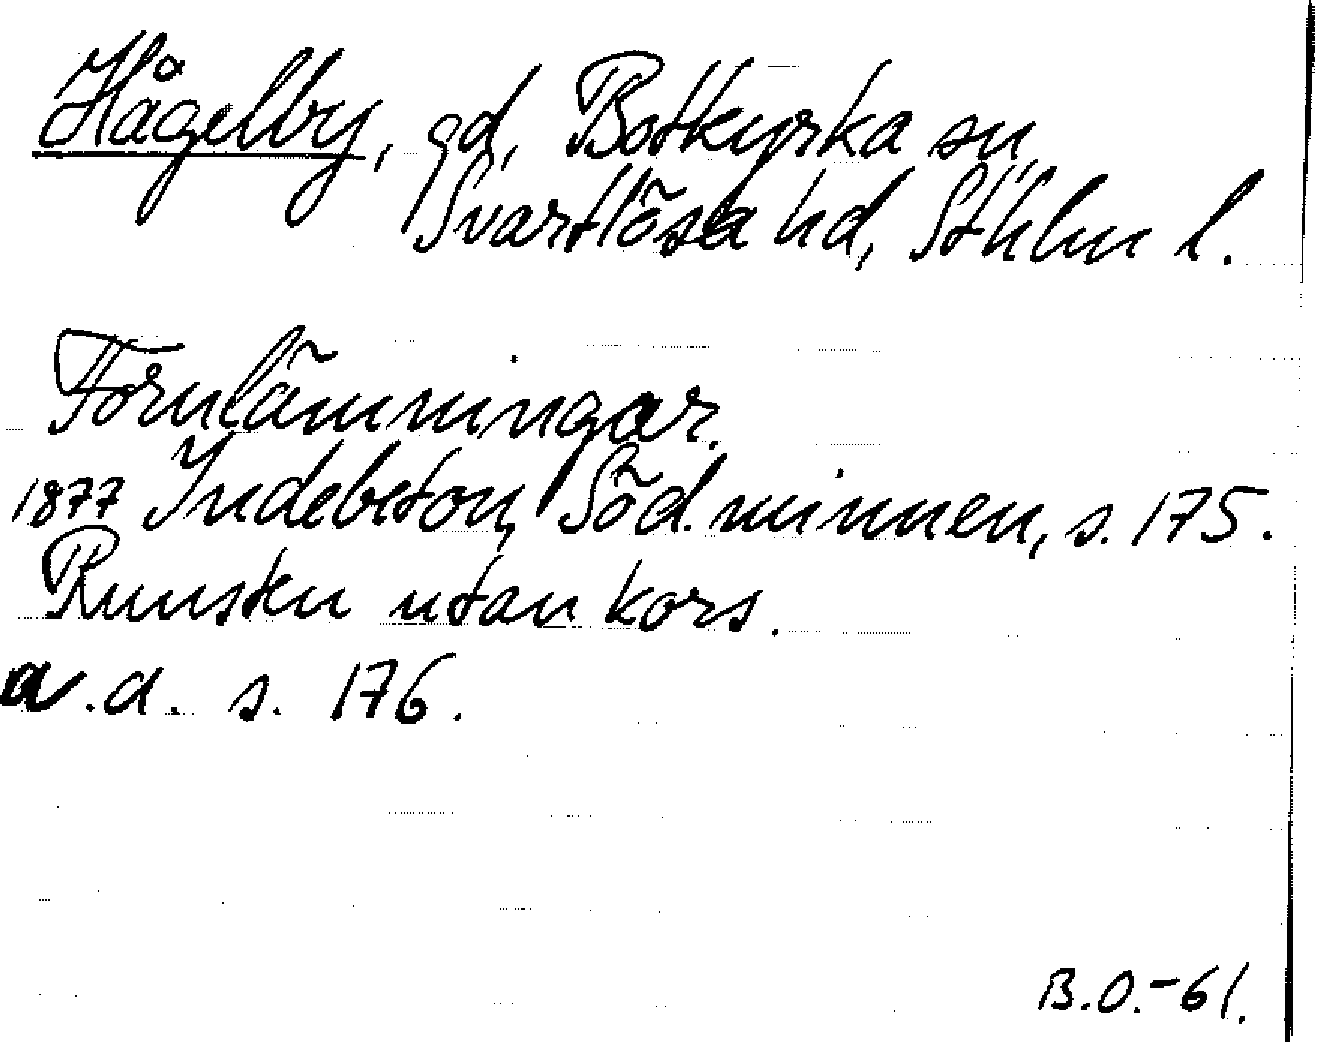 Hågelby, gd, Botkyrka sn,
Svartlösa hd, Sthlm l.
Fornlämningar.
1877 Indebetou, Söd. minnen, s. 175.
Runsten utan kors.
a.a. s. 176.
B.O.-61.